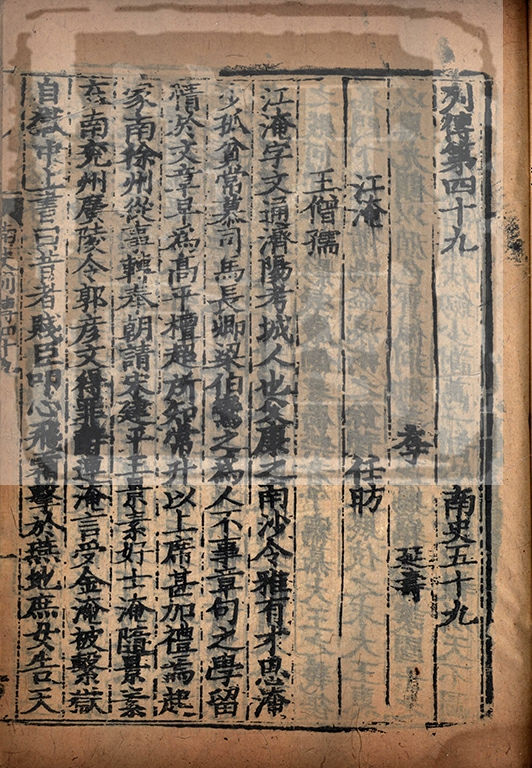 列傳第四十九 南史五十九
李 延壽
江淹 任昉
王僧孺
江淹字文通濟陽考城人也父康之南沙令雅有才思淹
少孤貧常慕司馬長卿梁伯鸞之為人不事章句之學留
情於文章早為高平檀超所知常升以上席甚加禮焉起
家南徐州從事轉奉朝請宋建平王景素好士淹隨景素
在南兗州廣陵令郭彥文得罪辭連淹言受金淹被繫獄
自獄中上書曰昔者賤臣叩心飛霜擊於燕地庶女告天
南史列傳四十九